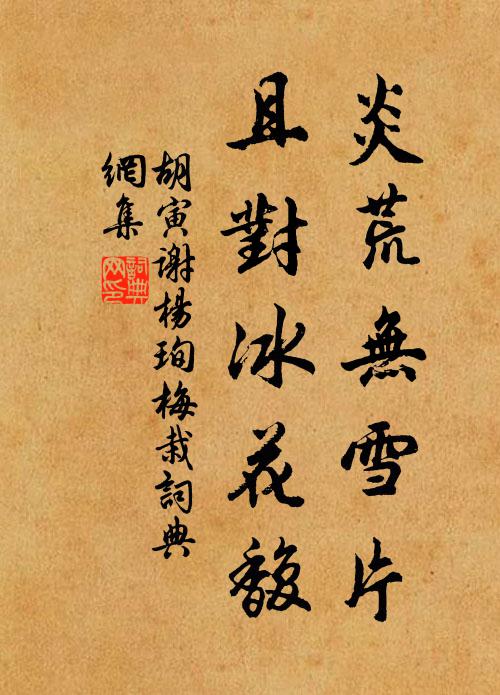 炎荒無雪片
且對冰花馥
胡寅謝楊珣梅栽詞典
網集
詞典網印